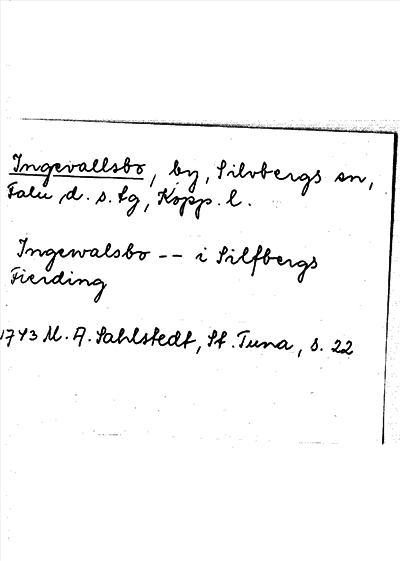 Ingevallsbo, by, Silvbergs sn,
Falu d. s. lg, Kopp. l.
Ingewalsbo -- i Silfbergs
Fierding
1743 M. A. Sahlstedt, St. Tuna, s. 22